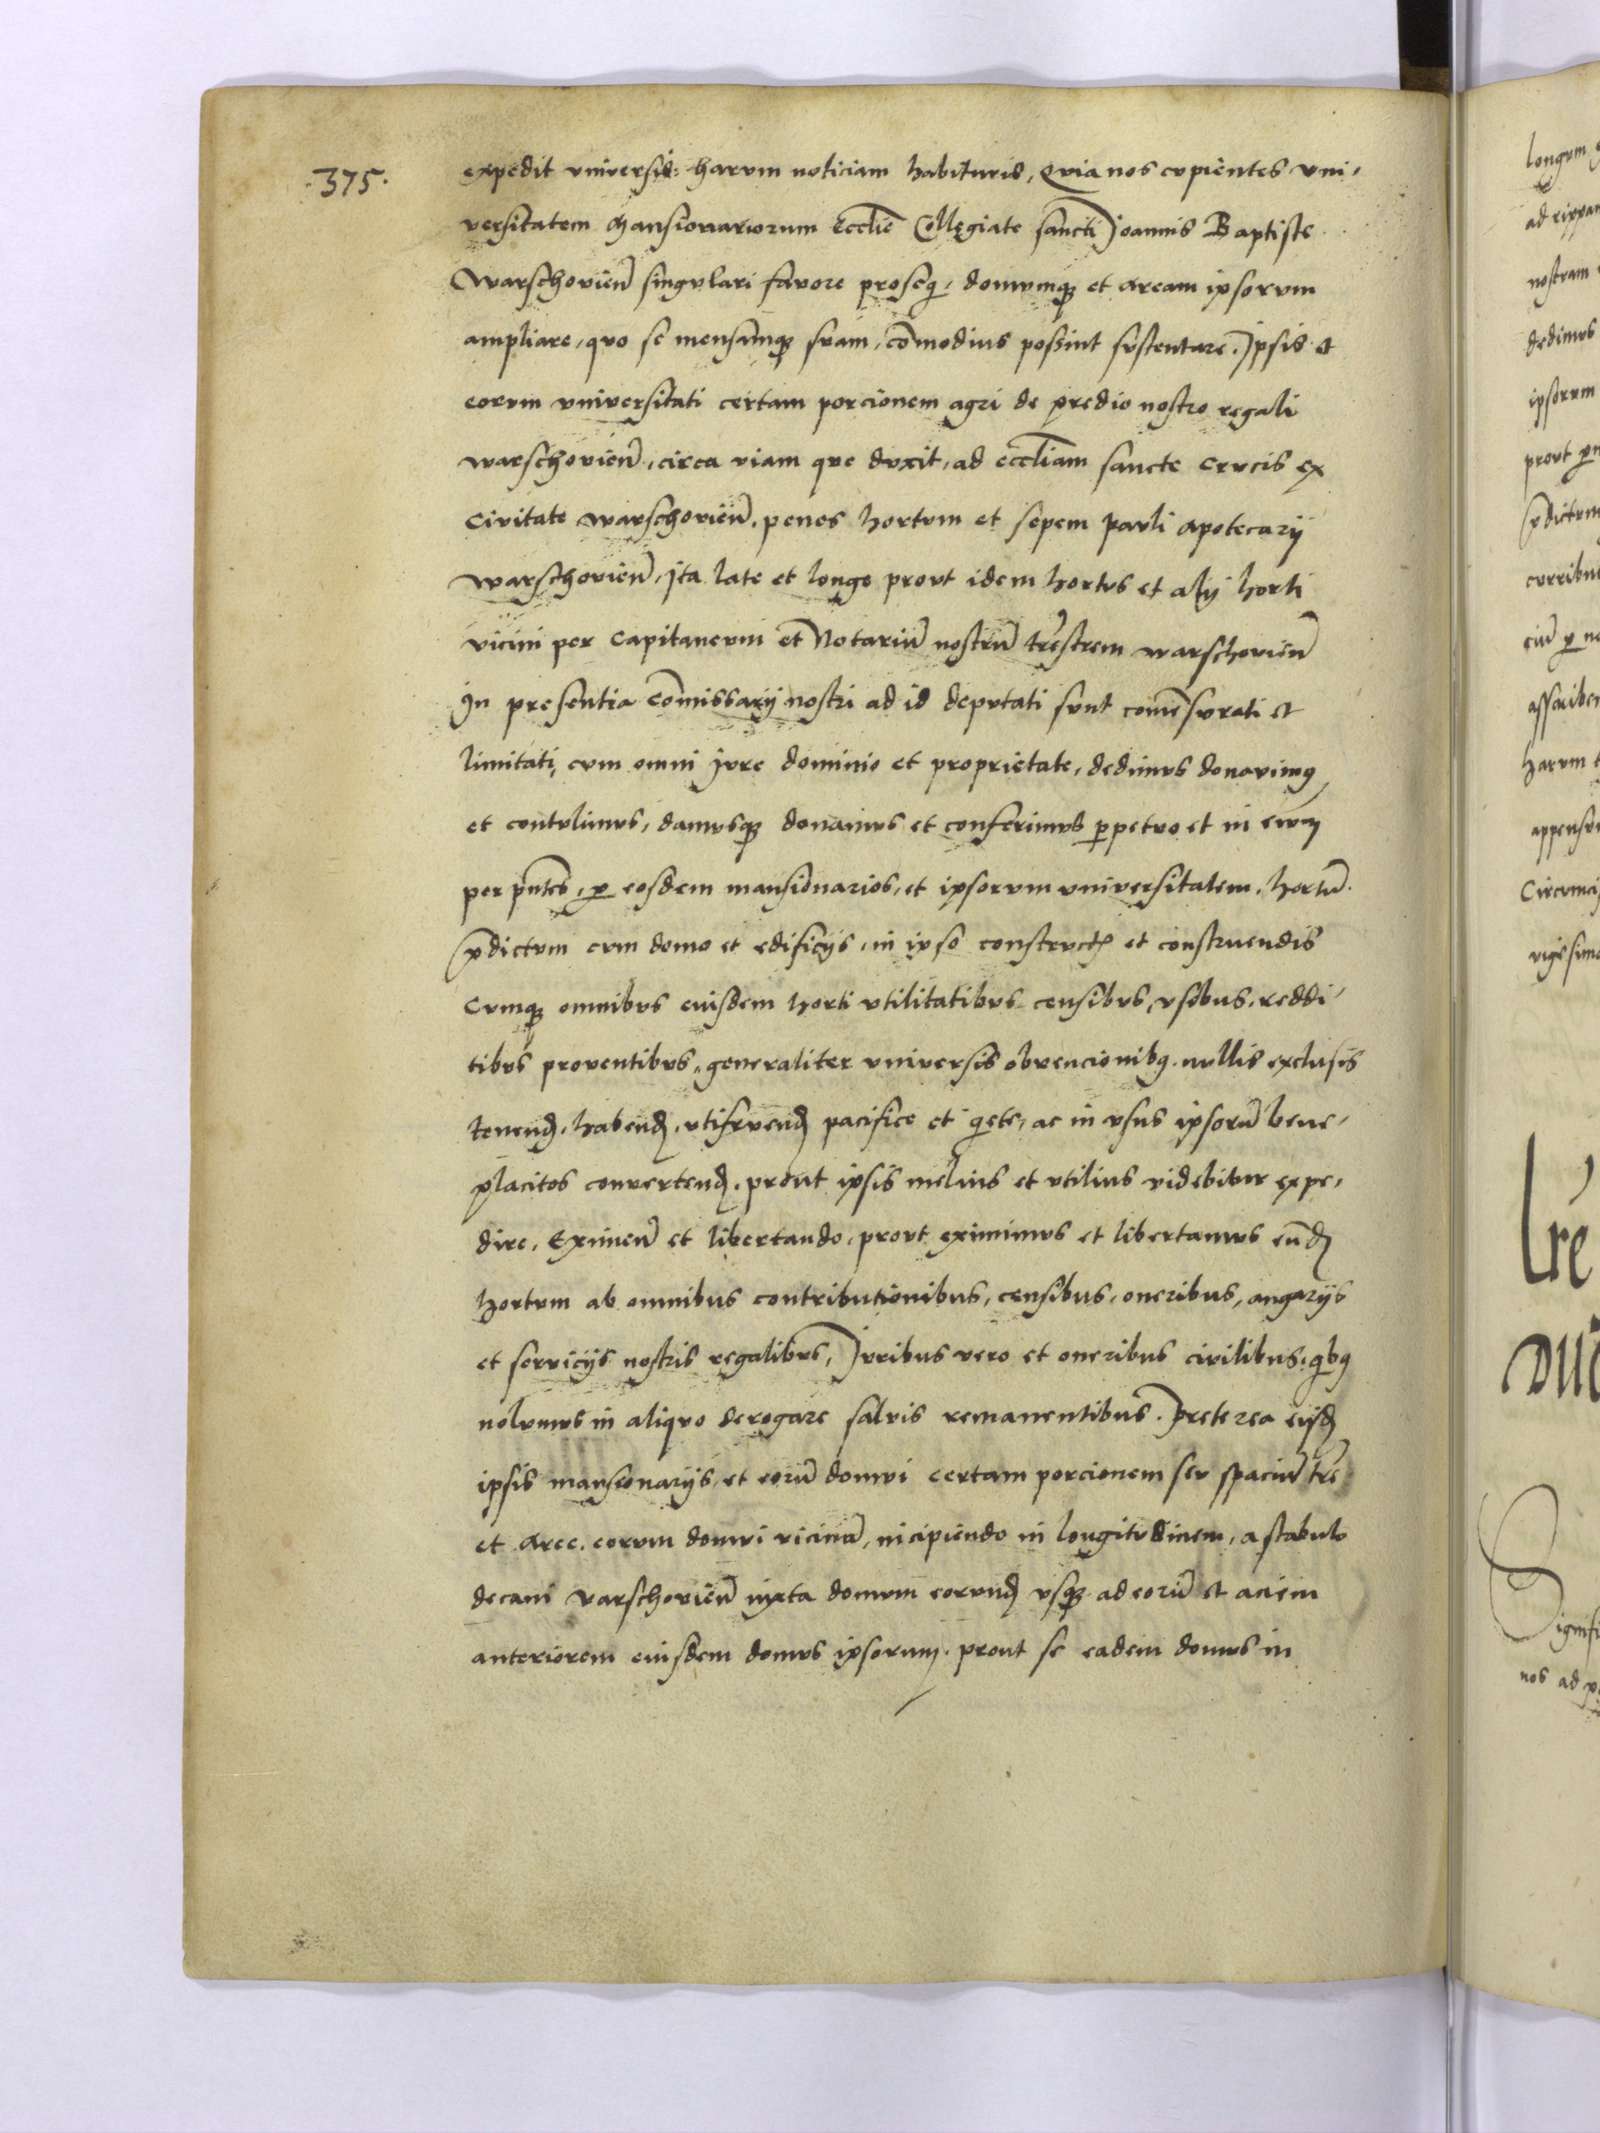 ·375·
expedit vniversis: harum noticiam habituris, Qvia nos cupientes vni-
versitatem Mansionariorum Ecclie Collegiate sancti Joannis Baptiste
Warschovien̄ singvlari favore proseqi, domumqꝫ et aream ipsorvm
ampliare, qvo se mensamqꝫ svam, com̄odius possint svstentare. Ipsis et
eorvm vniversitati certam porcionem agri de predio nostro regali
warschovien̄, circa viam qve dvxit, ad eccliam sancte crvcis ex
Civitate warschovien̄, penes hortvm et sepem pavli apotecarij
warschovien̄, Ita late et longe provt idem hortvs et alij horti
vicini per capitanevm et Notariū nostrū trēstrem warschovien̄
In presentia com̄issarij nostri ad id depvtati svnt comēsvrati et
limitati, cvm omni jvre dominio et proprietate, dedimvs donavimꝰ
et contvlimvs, damvsqꝫ donamvs et conferimvs ꝑpetvo et in evvm
per pn̄tes, ꝑ eosdem mansionarios, et ipsorvm vniversitatem, hortū
p̄dictvm cvm domo et edificijs, in ipso constrvctꝭ et construendis
Cvmqꝫ omnibvs eiusdem horti vtilitatibvs censibvs, vsibus, reddi-
tibvs proventibvs, generaliter vniversis obvencionibꝰ nvllis exclusis
tenend̄, habend̄, vtifrvend̄ pacifice et qiete, ac in vsus ipsorū bene-
placitos convertend̄, prout ipsis melius et vtilius videbitvr expe-
dire, Eximen̄ et libertando, provt eximimvs et libertamvs eund̄
hortvm ab omnibus contributionibus, censibus, oneribus, angarijs
et servicijs nostris regalibvs, Jvribus vero et oneribus civilibus, qibꝰ
nolvmvs in aliqvo derogare salvis remanentibus. Preterea eisd̄
ipsis mansionarijs, et eorū domvi certam porcionem sev spaciū trē
et aree, eorvm domvi vicinā, incipiendo in longitvdinem, a stabulo
decani varschovien̄ iuxta domvm eorund̄ vsqꝫ ad eorū et aciem
anteriorem eiusdem domvs ipsorum, prout se eadem domvs in
longvm
ad rippam
nostram
dedimvs
ipsorvm
provt
p̄dictvm
cvrribus
eiū ꝑ
harvm
vigesimo
Lrē
nos ad